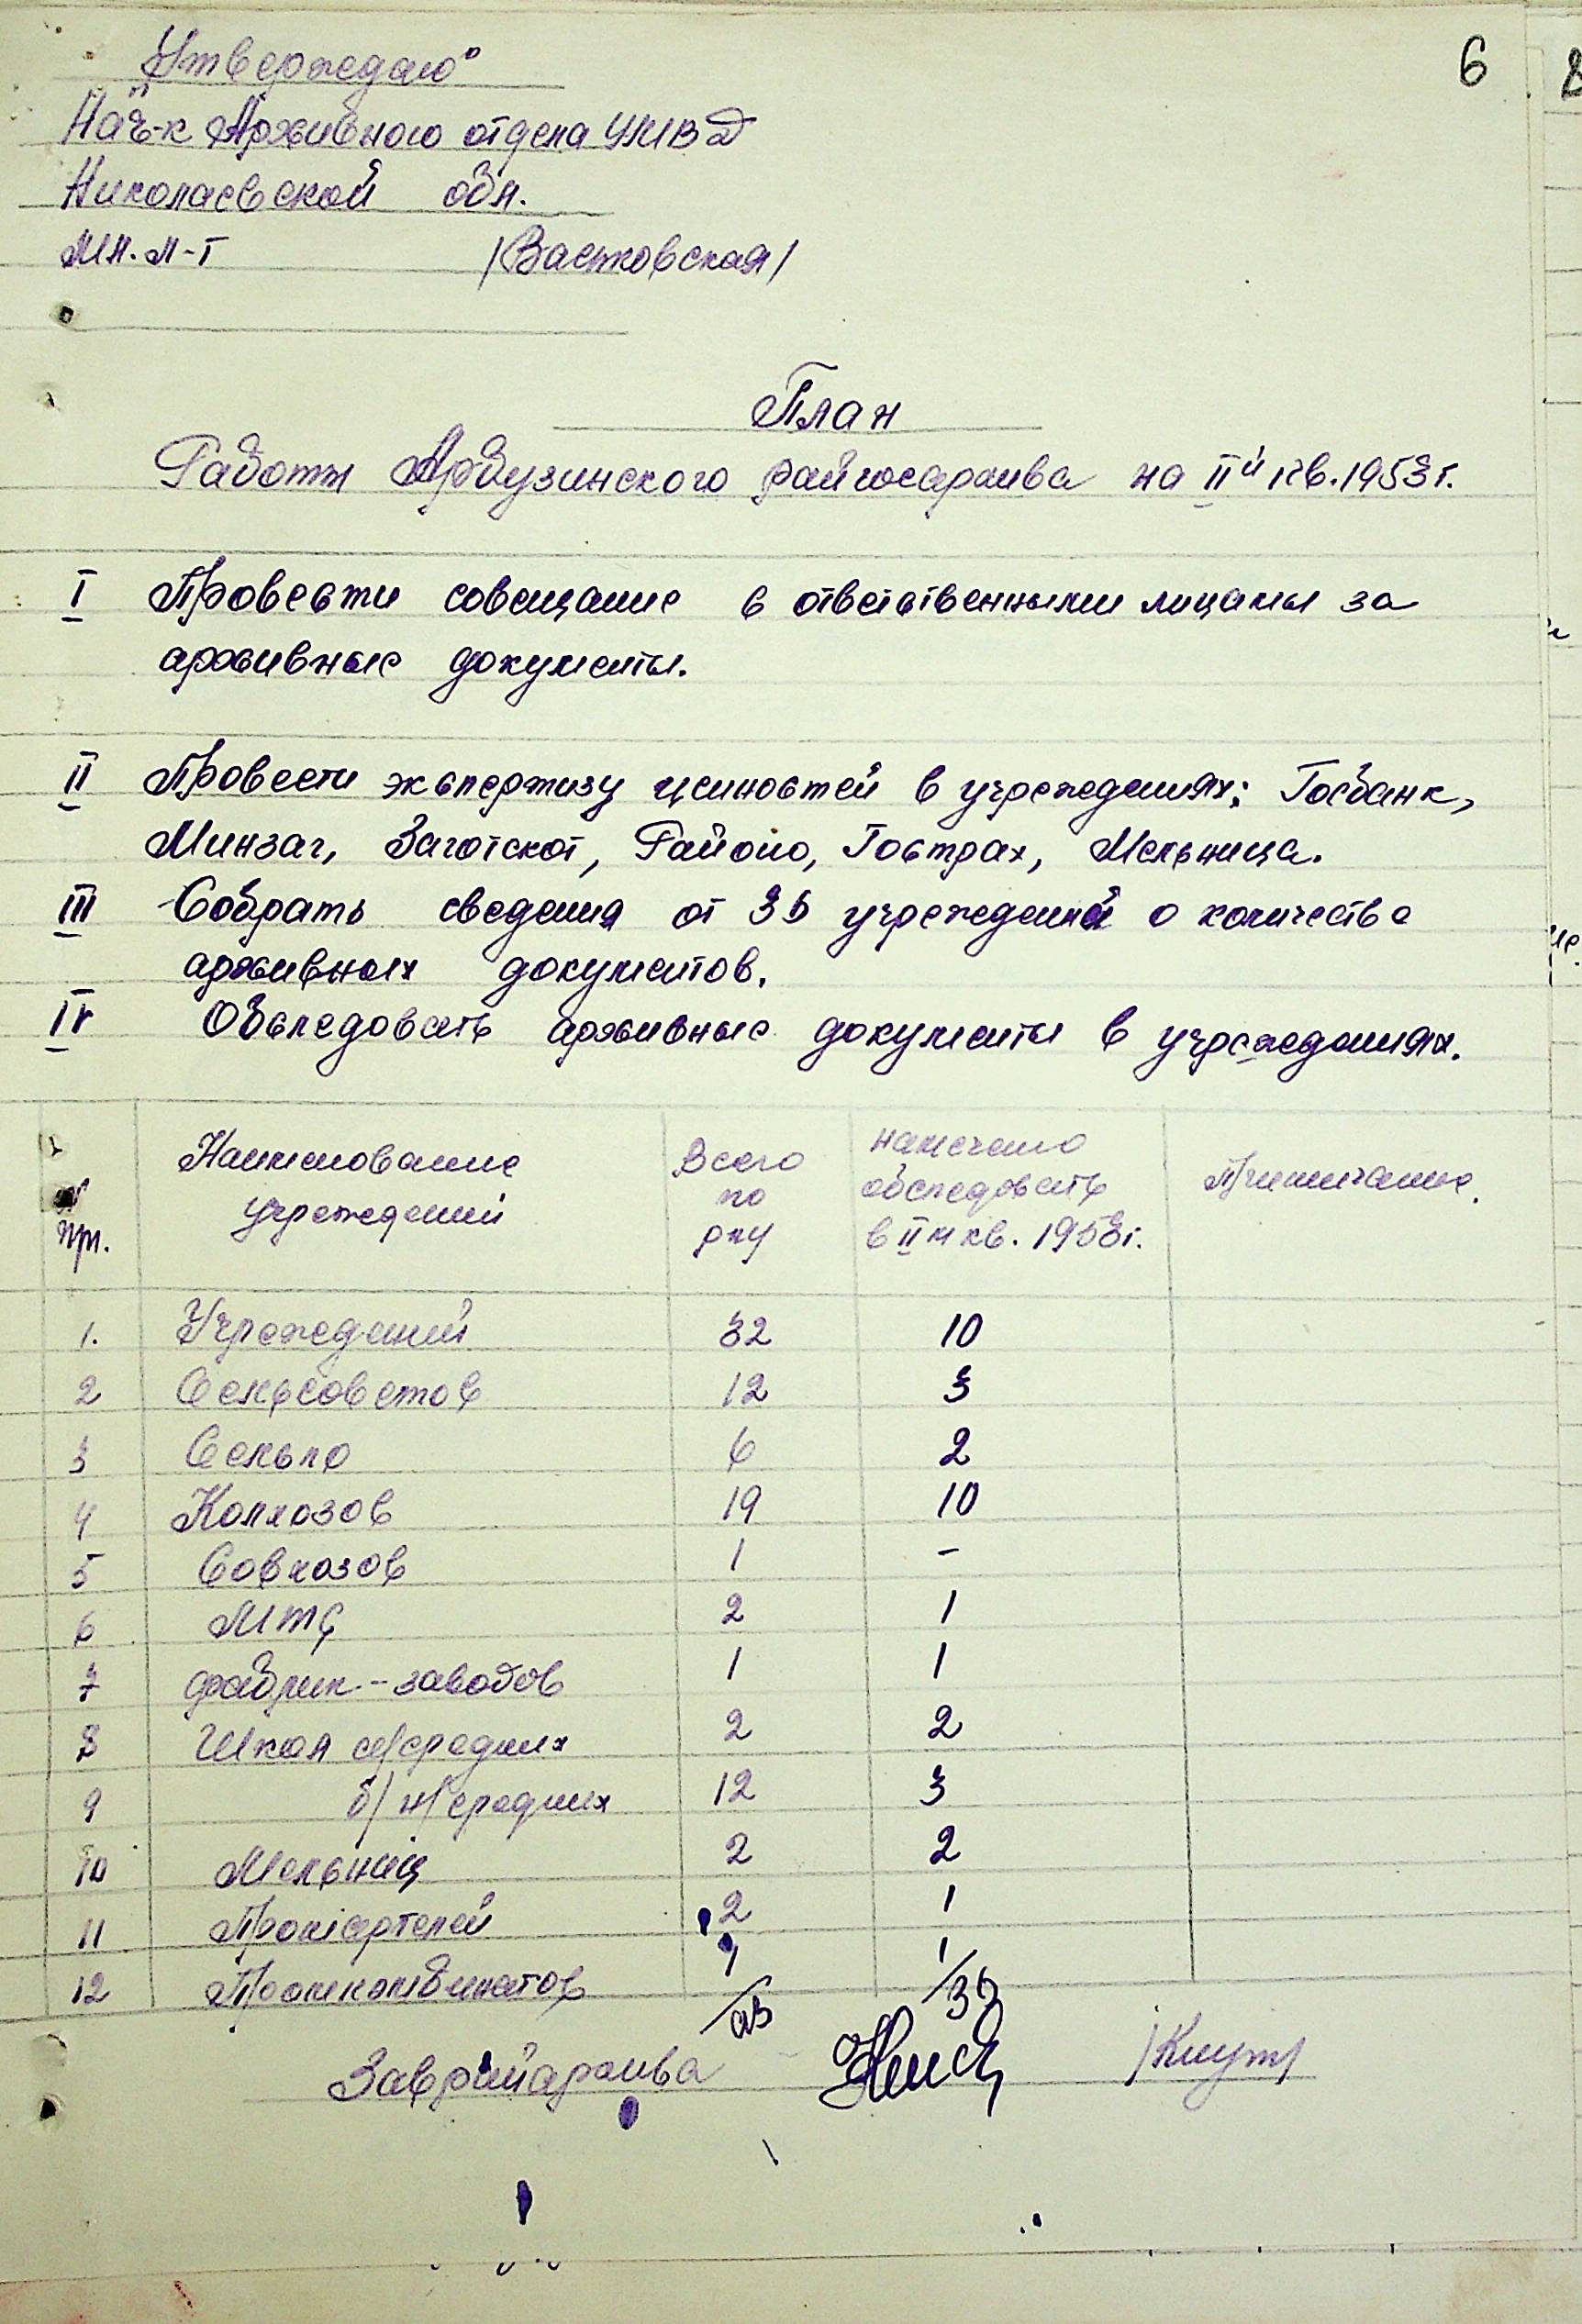 6
„Утверждаю"
Нач-к Архивного отдела УМВД
Николаевской обл.
Мл. л-т /Вастковская/
План
Работы Арбузинского райгосархива на IIй кв. 1953 г.
I Провести совещание с ответственными лицами за
архивные документы.
II Провести экспертизу ценностей в учреждениях: Госбанк,
Минзаг, Заготскот, Районо, Госстрах, Мельница.
III Собрать сведения от 35 учреждений о количестве
архивных документов.
IV Обследовать архивные документы в учреждениях.
№ пп. Наименование учреждений Всего по р-ну намечено обследовать в II м кв. 1953 г. Примичание.
1. Учреждений 32 10
2 Сельсоветов 12 3
3 Сельпо 6 2
4 Колхозов 19 10
5 Совхозов 1 -
6 МТС 2 1
7 фабрик-заводов 1 1
8 Школ с/средних 2 2
9 б/ н/средних 12 3
10 Мельниц 2 2
11 Промартелей 2 1
12 Промкомбинатов 1 1
Заврайархива /Кнут/